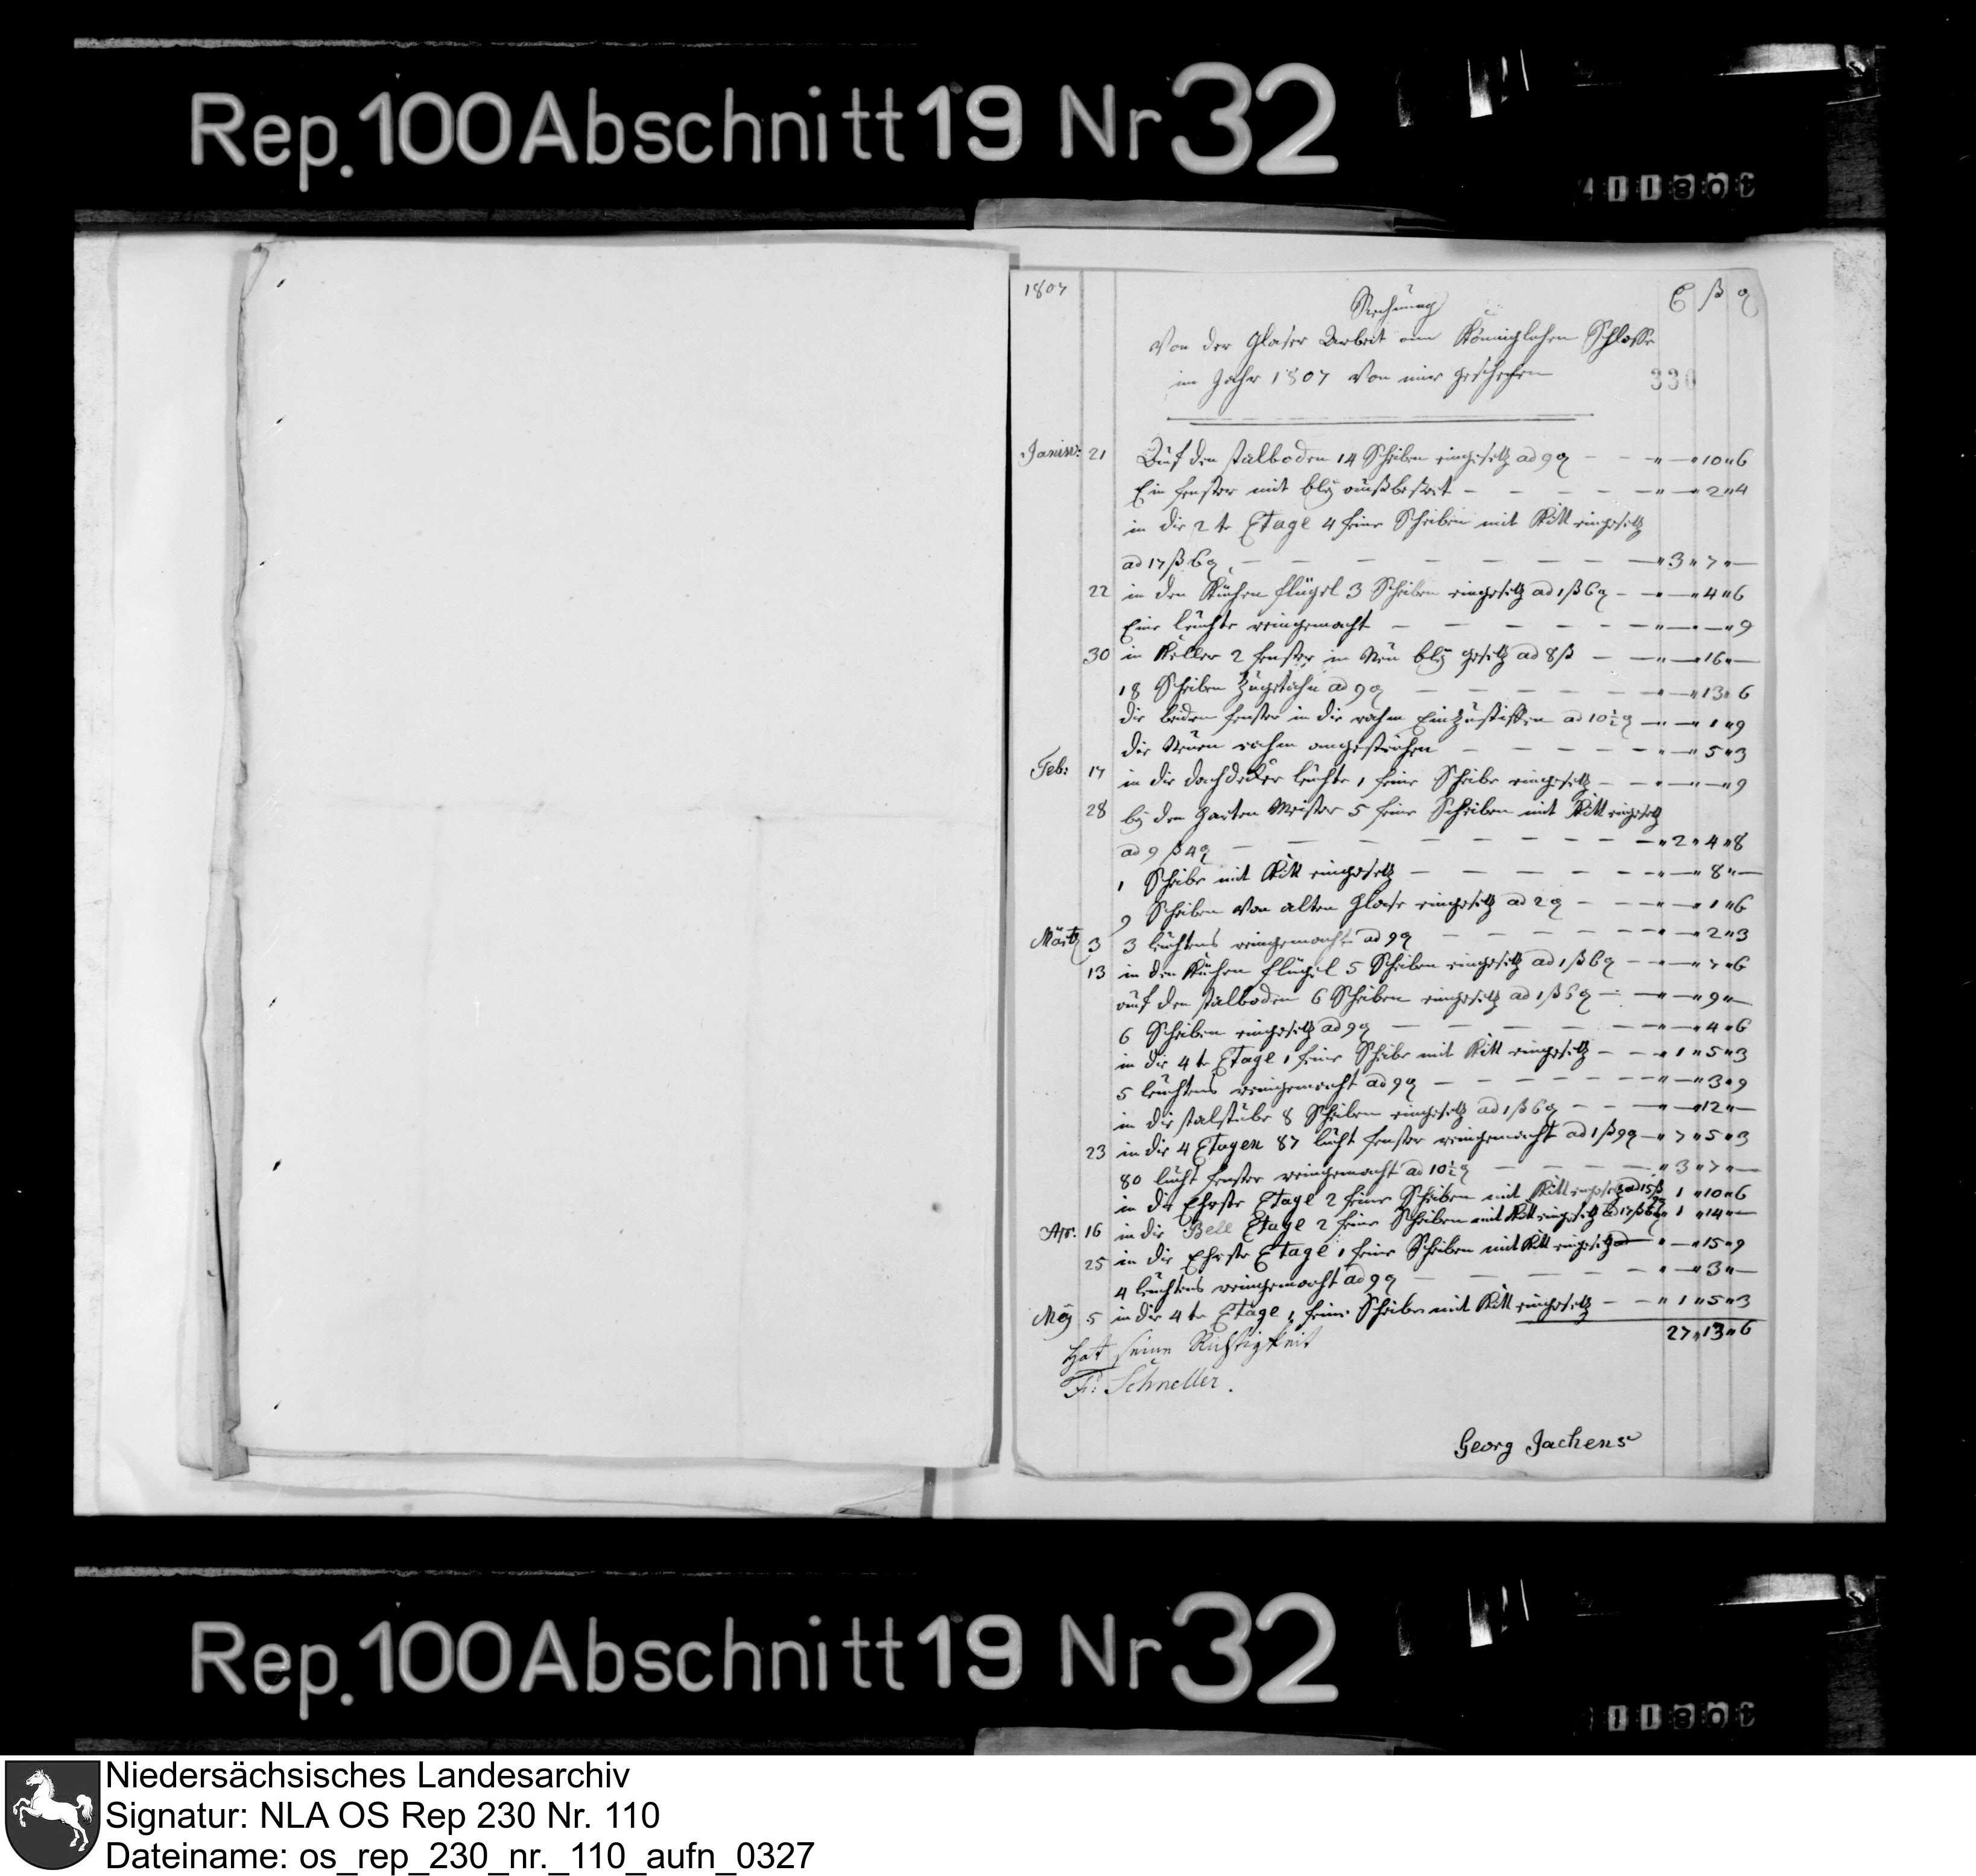 Rep. 100 Abschnitt 19 Nr 32
1807
Rechnung
₰ ß ₰
Von der Glaser Arbeit am Königlichen Schlosse
im Jahr 1807 von mir geschehen
330
Januar: 21 Auf den stalboden 14 Scheiben eingesetz ad 9 ₰ — — " — " 10 " 6
Ein fenster mit bley außbessert — — — — " — " 2 " 4
in die 2te Etage 4 feine Scheiben mit Kitt eingesetz
ad 17 ß 6 ₰ — — — — — " 3 " 7 " —
22 in den Küchen flügel 3 Scheiben eingesetz ad 1 ß 6 ₰ — " — " 4 " 6
Eine leuchte reingemacht — — — — " — " — " 9
30 in Keller 2 fenster in Neu bley gesetz ad 8 ß — — " — " 16 " —
18 Scheiben zugethan ad 9 ₰ — — — — " — " 13 " 6
die beiden fenster in die rahm Einzustiften ad 10 ½ ₰ — " — " 1 " 9
die Neuen rahm angestrichen — — — — " — " 5 " 3
Feb: 17 in die dachdecker leuchte 1 feine Scheibe eingesetz — " — " — " 9
28 bey den Garten Meister 5 feine Scheiben mit Kitt eingesetz
ad 9 ß 4 ₰ — — — — — " 2 " 4 " 8
1 Scheibe mit Kitt eingesetz — — — — " — " 8 " —
9 Scheiben von alten Glase eingesetz ad 2 ₰ — — " — " 1 " 6
Märtz 3 3 leuchtens reingemacht ad 9 ₰ — — — — " — " 2 " 3
13 in den Küchen flügel 5 Scheiben eingesetz ad 1 ß 6 ₰ — " — " 7 " 6
auf den stalboden 6 Scheiben eingesetz ad 1 ß 6 ₰ — " — " 9 " —
6 Scheiben eingesetz ad 9 ₰ — — — — " — " 4 " 6
in die 4te Etage 1 feine Scheibe mit Kitt eingesetz — — " 1 " 5 " 3
5 leuchtens reingemacht ad 9 ₰ — — — — " — " 3 " 9
in die stalstube 8 Scheiben eingesetz ad 1 ß 6 ₰ — — " — " 12 " —
23 in die 4 Etagen 87 lucht fenster reingemacht ad 1 ß 9 ₰ — " 7 " 5 " 3
80 lucht fenster reingemacht ad 10 ½ ₰ — — — " 3 " 7 " —
in die Ehrste Etage 2 feine Scheiben mit Kitt eingesetz ad 15 ß 9 ₰ 1 " 10 " 6
Apr: 16 in die Bell Etage 2 feine Scheiben mit Kitt eingesetz ad 17 ß 6 ₰ " 1 " 14 " —
25 in die Ehrste Etage 1 feine Scheiben mit Kitt eingesetz " — " 15 " 9
4 leuchtens reingemacht ad 9 ₰ — — — — " — " 3 " —
Mey 5 in die 4te Etage 1 feine Scheibe mit Kitt eingesetz — — " 1 " 5 " 3
27 " 13 " 6
Hat seine Richtigkeit
Fr: Schneller.
Georg Jachens
Rep. 100 Abschnitt 19 Nr 32
Niedersächsisches Landesarchiv
Signatur: NLA OS Rep 230 Nr. 110
Dateiname: os_rep_230_nr._110_aufn_0327